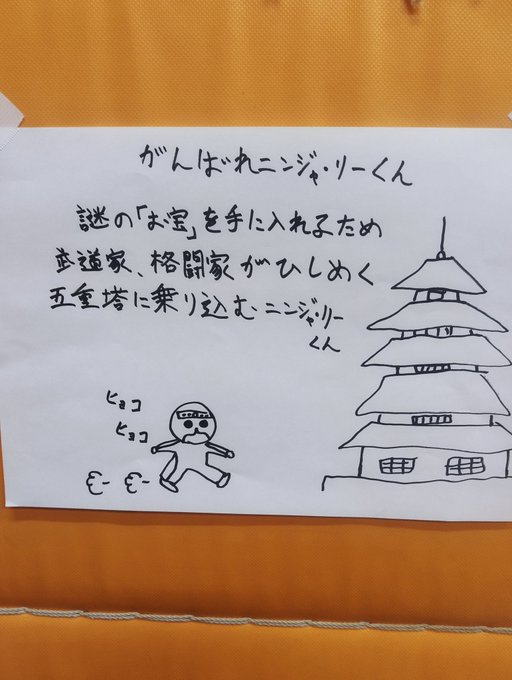 がんばれニンジャ・リーくん
謎の「お宝」を手に入れるため
武道家、格闘家がひしめく
五重塔に乗り込むニンジャ・リー
くん
ヒョコ
ヒョコ